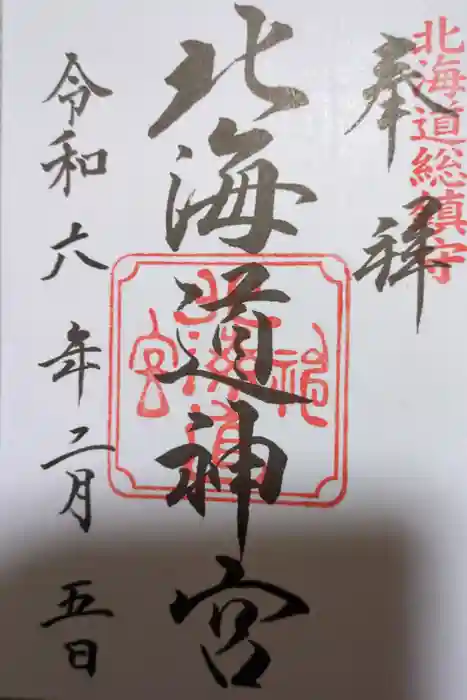 北海道総鎮守
奉拝
北海道神宮
令和六年二月五日